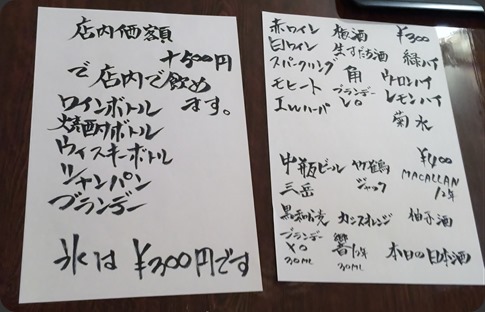 店内価額
+500円
で店内で飲め
ます。
ワインボトル
焼酎ボトル
ウィスキーボトル
シャンパン
ブランデー
氷は ¥300円です
赤ワイン 梅酒 ¥300
白ワイン 生すだち酒 緑ハイ
スパークリング 角 ウーロンハイ
モヒート ブランデー V.O レモンハイ
菊水
中瓶ビール 竹鶴 ¥400
三岳 ジャック MACALLAN 12年
カシスオレンジ 柚子酒
ブランデー XO 30ML 響12年 30ML 本日の日本酒